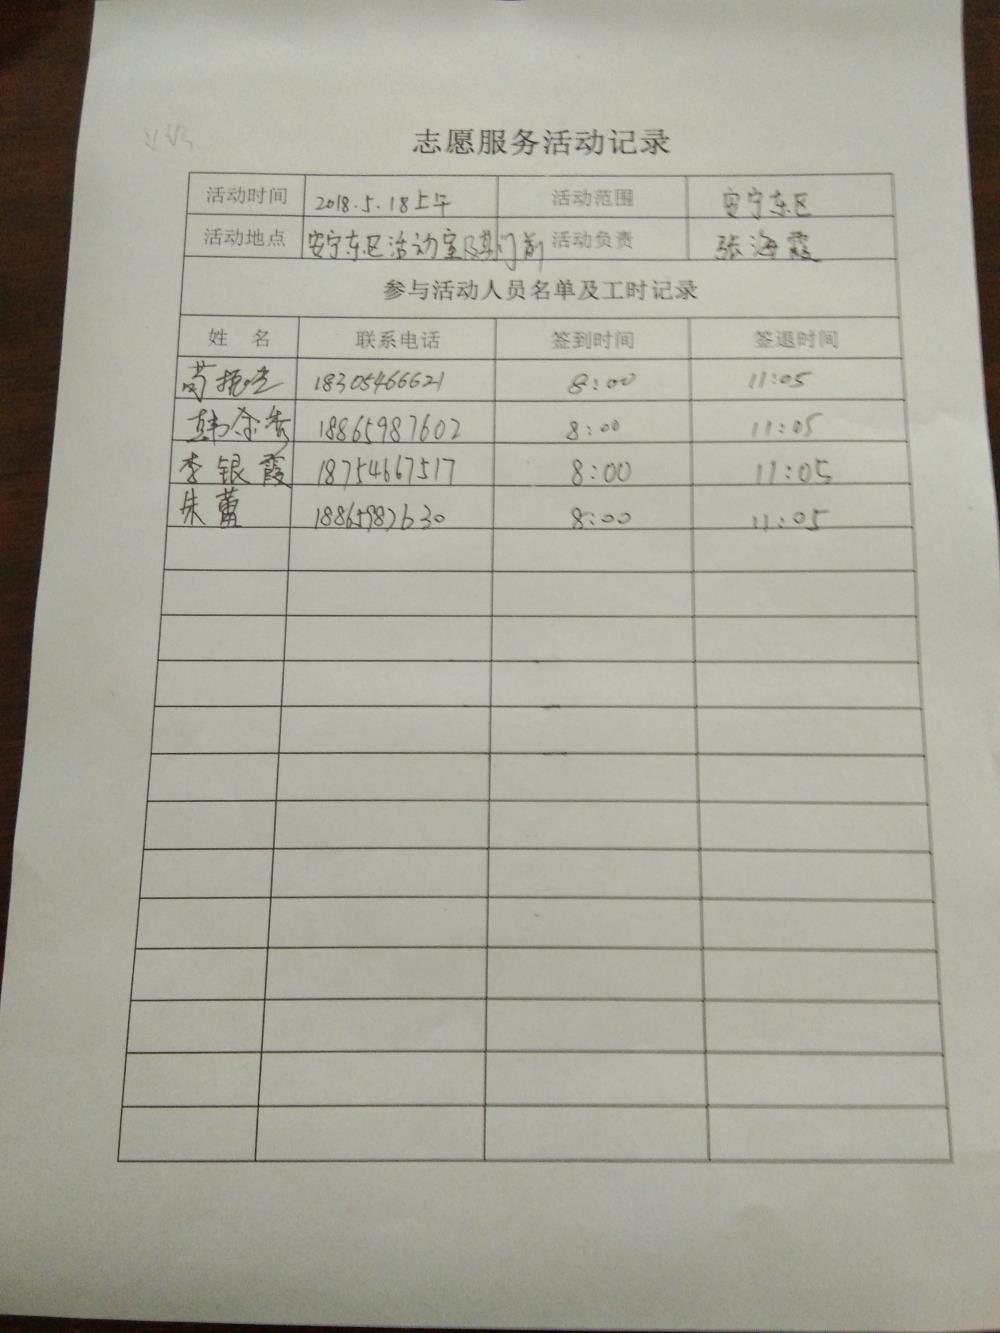 志愿服务活动记录
活动时间 2018.5.18上午 活动范围 安宁东区
活动地点 安宁东区活动室及其门前 活动负责 张海霞
参与活动人员名单及工时记录
姓 名 联系电话 签到时间 签退时间
18305466621 8:00 11:05
韩金秀 18865987602 8:00 11:05
李银霞 18754667517 8:00 11:05
朱蕾 18865987630 8:00 11:05